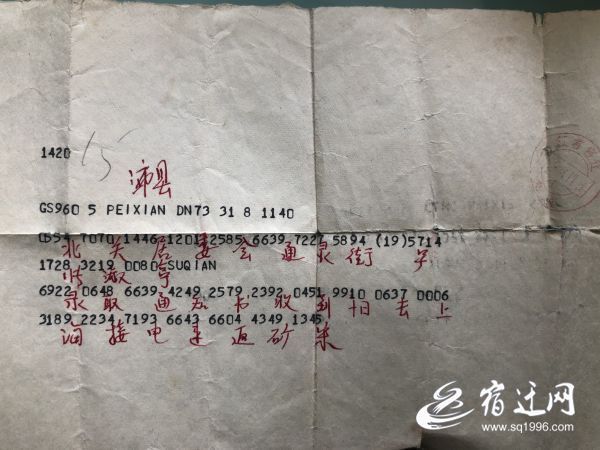 1420
15
沛县
GS960 5 PEIXIAN DN73 31 8 1140
0554 7070 1446 1201 2585 6639 7227 5894 (19)5714
北 关 居 委 会 通 泉 街 号
1728 3219 0080 SUQIAN
张 淑 亭
6922 0648 6639 4249 2579 2392 0451 9910 0637 0006
录 取 通 知 书 收 到 10日 去 上
3189 2234 7193 6643 6604 4349 1345
海 接 电 速 返 砂 宋
宿迁网
www.sq1996.com